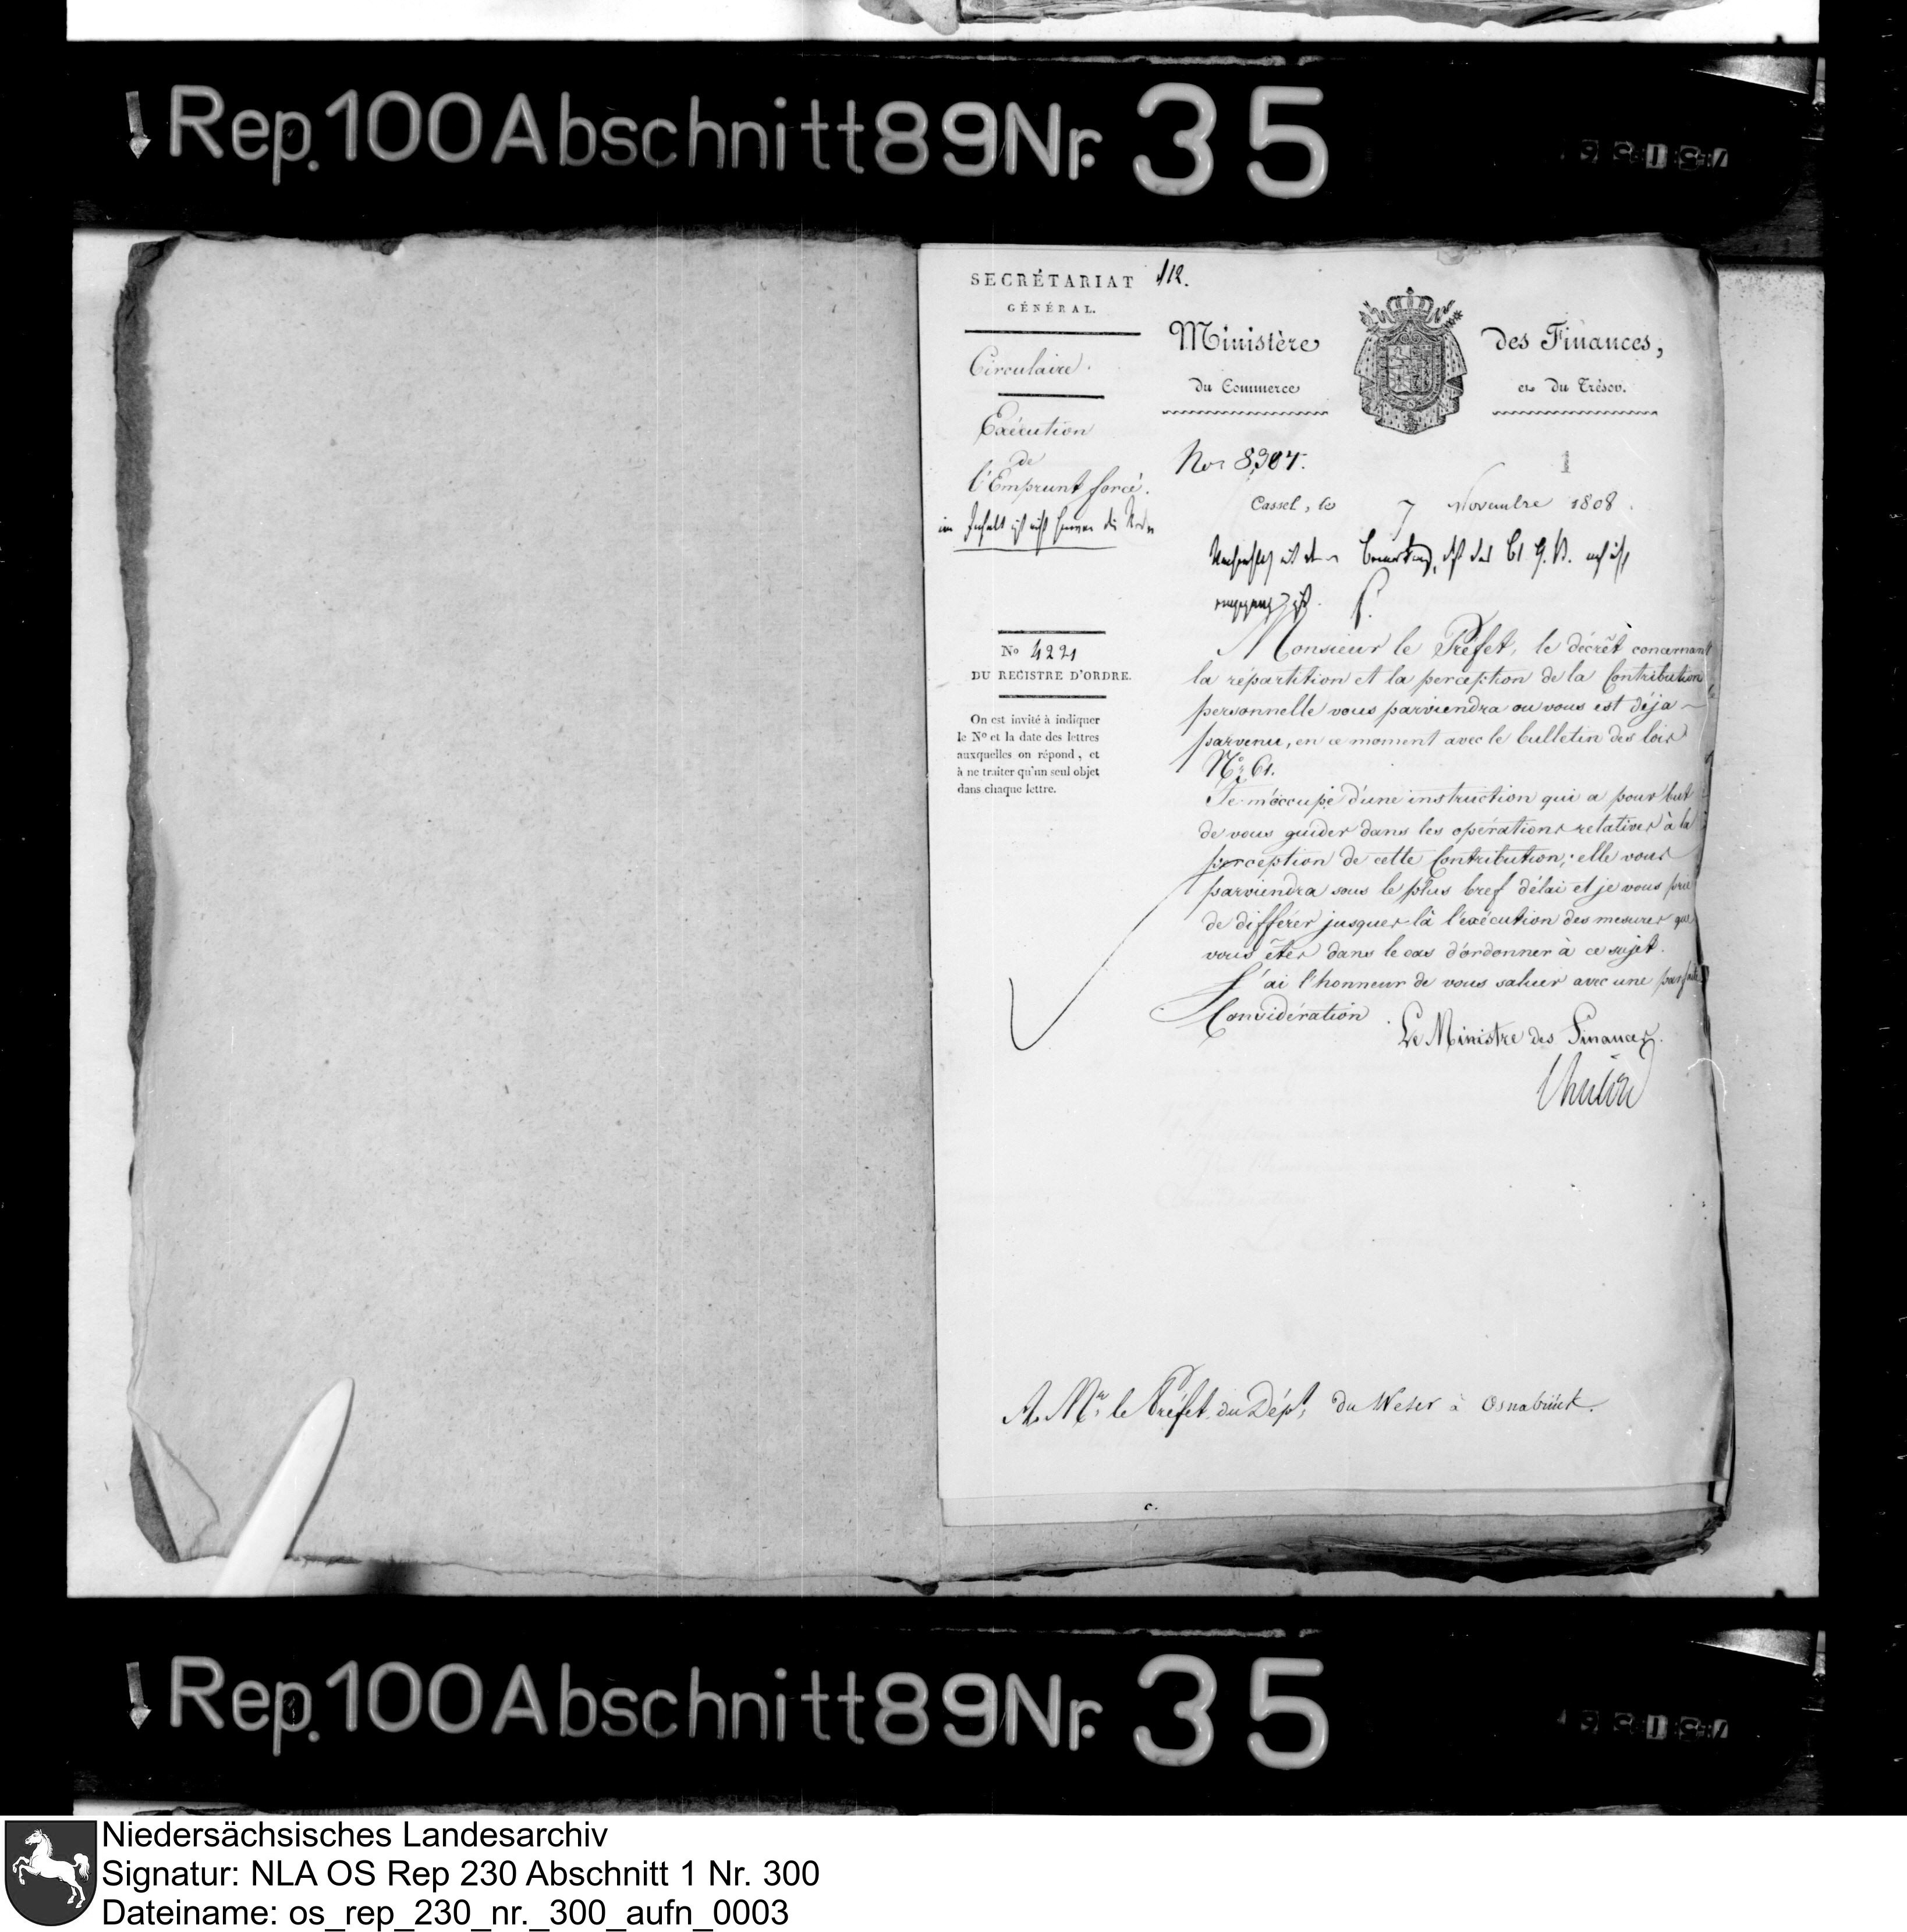 Rep. 100 Abschnitt 89 Nr. 35
SECRÉTARIAT
GÉNÉRAL.
Circulaire.
Exécution
de
l'Emprunt forcé.
No 4221
DU REGISTRE D'ORDRE.
On est invité à indiquer
le No et la date des lettres
auxquelles on répond, et
à ne traiter qu'un seul objet
dans chaque lettre.
112.
Ministère des Finances,
du Commerce et du Trésor.
1
Cassel, le 7 Novembre 1808.
Monsieur le Préfet, le décrêt concernant
la répartition et la perception de la Contribution
personnelle vous parviendra ou vous est déja
parvenu, en ce moment avec le bulletin des lois
No 61.
Je m'occupe d'une instruction qui a pour but
de vous guider dans les opérations relatives à la
perception de cette Contribution; elle vous
parviendra sous le plus bref délai et je vous prie
de différer jusques là l'exécution des mesures que
vous êtes dans le cas d'ordonner à ce sujet.
J'ai l'honneur de vous saluer avec une parfaite
Considération
Le Ministre des Finances.
A Mr. le Préfet du Dépt. du Weser à Osnabrück.
Rep. 100 Abschnitt 89 Nr. 35
Niedersächsisches Landesarchiv
Signatur: NLA OS Rep 230 Abschnitt 1 Nr. 300
Dateiname: os_rep_230_nr._300_aufn_0003